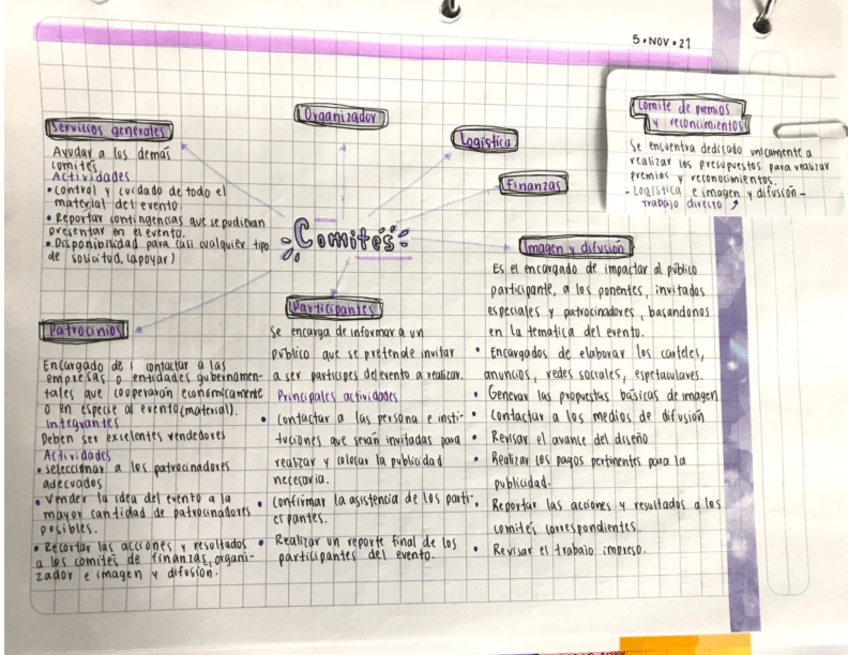 5·NOV·21
Comité de premios
y reconcimientos
Se encuentra dedicado unicamente a
realizar los presupuestos para realizar
premios y reconocimientos.
- Logística e imagen y difusión -
trabajo directo ↗
Organizador
Logística
Finanzas
Comités
Servicios generales
Ayudar a los demás
comités
Actividades
• Control y cuidado de todo el
material del evento.
• Reportar contingencias que se pudieran
presentar en el evento.
• Disponibilidad para casi cualquier tipo
de solicitud. (apoyar)
Patrocinios
Encargado de contactar a las
empresas o entidades gubernamen-
tales que cooperarán económicamente
o en especie al evento (material).
Integrantes
Deben ser excelentes vendedores
Actividades
• Seleccionar a los patrocinadores
adecuados
• Vender la idea del evento a la
mayor cantidad de patrocinadores
posibles.
• Recortar las acciones y resultados
a los comités de finanzas, organi-
zador e imagen y difusión.
Participantes
Se encarga de informar a un
público que se pretende invitar
a ser participes del evento a realizar.
Principales actividades
• Contactar a las persona e insti-
tuciones que serán invitadas para
realizar y colocar la publicidad
necesaria.
• Confirmar la asistencia de los parti-
cipantes.
• Realizar un reporte final de los
participantes del evento.
Imagen y difusión
Es el encargado de impactar al público
participante, a los ponentes, invitados
especiales y patrocinadores, basandonos
en la tematica del evento.
• Encargados de elaborar los carteles,
anuncios, redes sociales, espetaculares.
• Generar las propuestas básicas de imagen
• Contactar a los medios de difusión
• Revisar el avance del diseño
• Realizar los pagos pertinentes para la
publicidad.
• Reportar las acciones y resultados a los
comités correspondientes.
• Revisar el trabajo impreso.